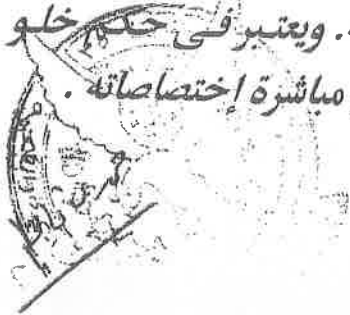 . ويعتبر فى حكم خلو
مباشرة إختصاصاته .